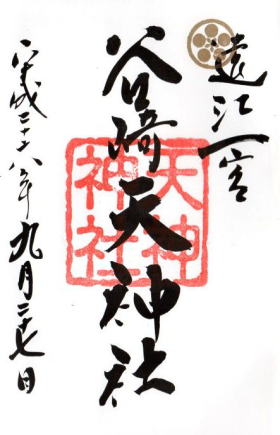 遠江一宮
谷﨑天神社
天神
神社
平成二十八年九月二十七日